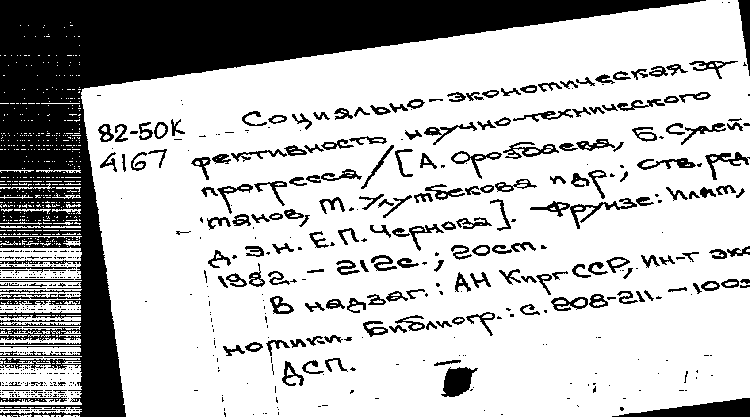 82-50К
4167
Социально-экономическая эф-
фективность научно-технического
прогресса / [А. Орозбаева, Б. Сулей-
манов, М. Улумбекова и др.; отв. ред.
д. э. н. Е. П. Чернова]. - Фрунзе: Илим,
1982. - 212 с.; 20 см.
В надзаг.: АН Кирг ССР, Ин-т эко
номики. Библиогр.: с. 208-211. - 100э
ДСП.